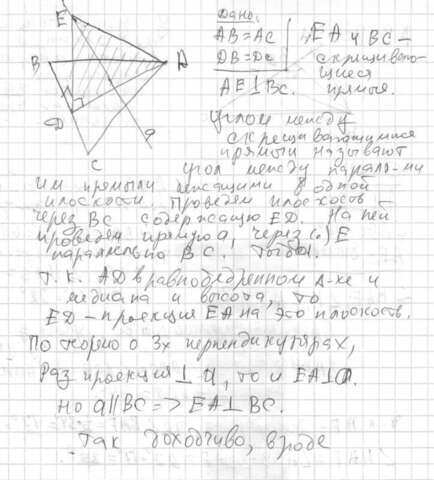 E
B
A
D
C
a
a
Дано:
AB=AC
DB=DC
AE⊥BC.
EA и BC –
скрещиваю-
щиеся
прямые.
Углом между
скрещивающимися
прямыми называют
угол между паралл-ми
им прямыми лежащими в одной
плоскости. Проведем плоскость
через BC содержащую ED. На ней
проведем прямую a, через (.) E
параллельно BC.
Т.к. AD в равнобедренном Δ-ке и
медиана и высота, то
ED – проекция EA на эту плоскость.
По теореме о 3х перпендикулярах,
Раз проекция ⊥ a, то и EA⊥a.
Но a||BC => EA⊥BC.
Так доходчиво, вроде